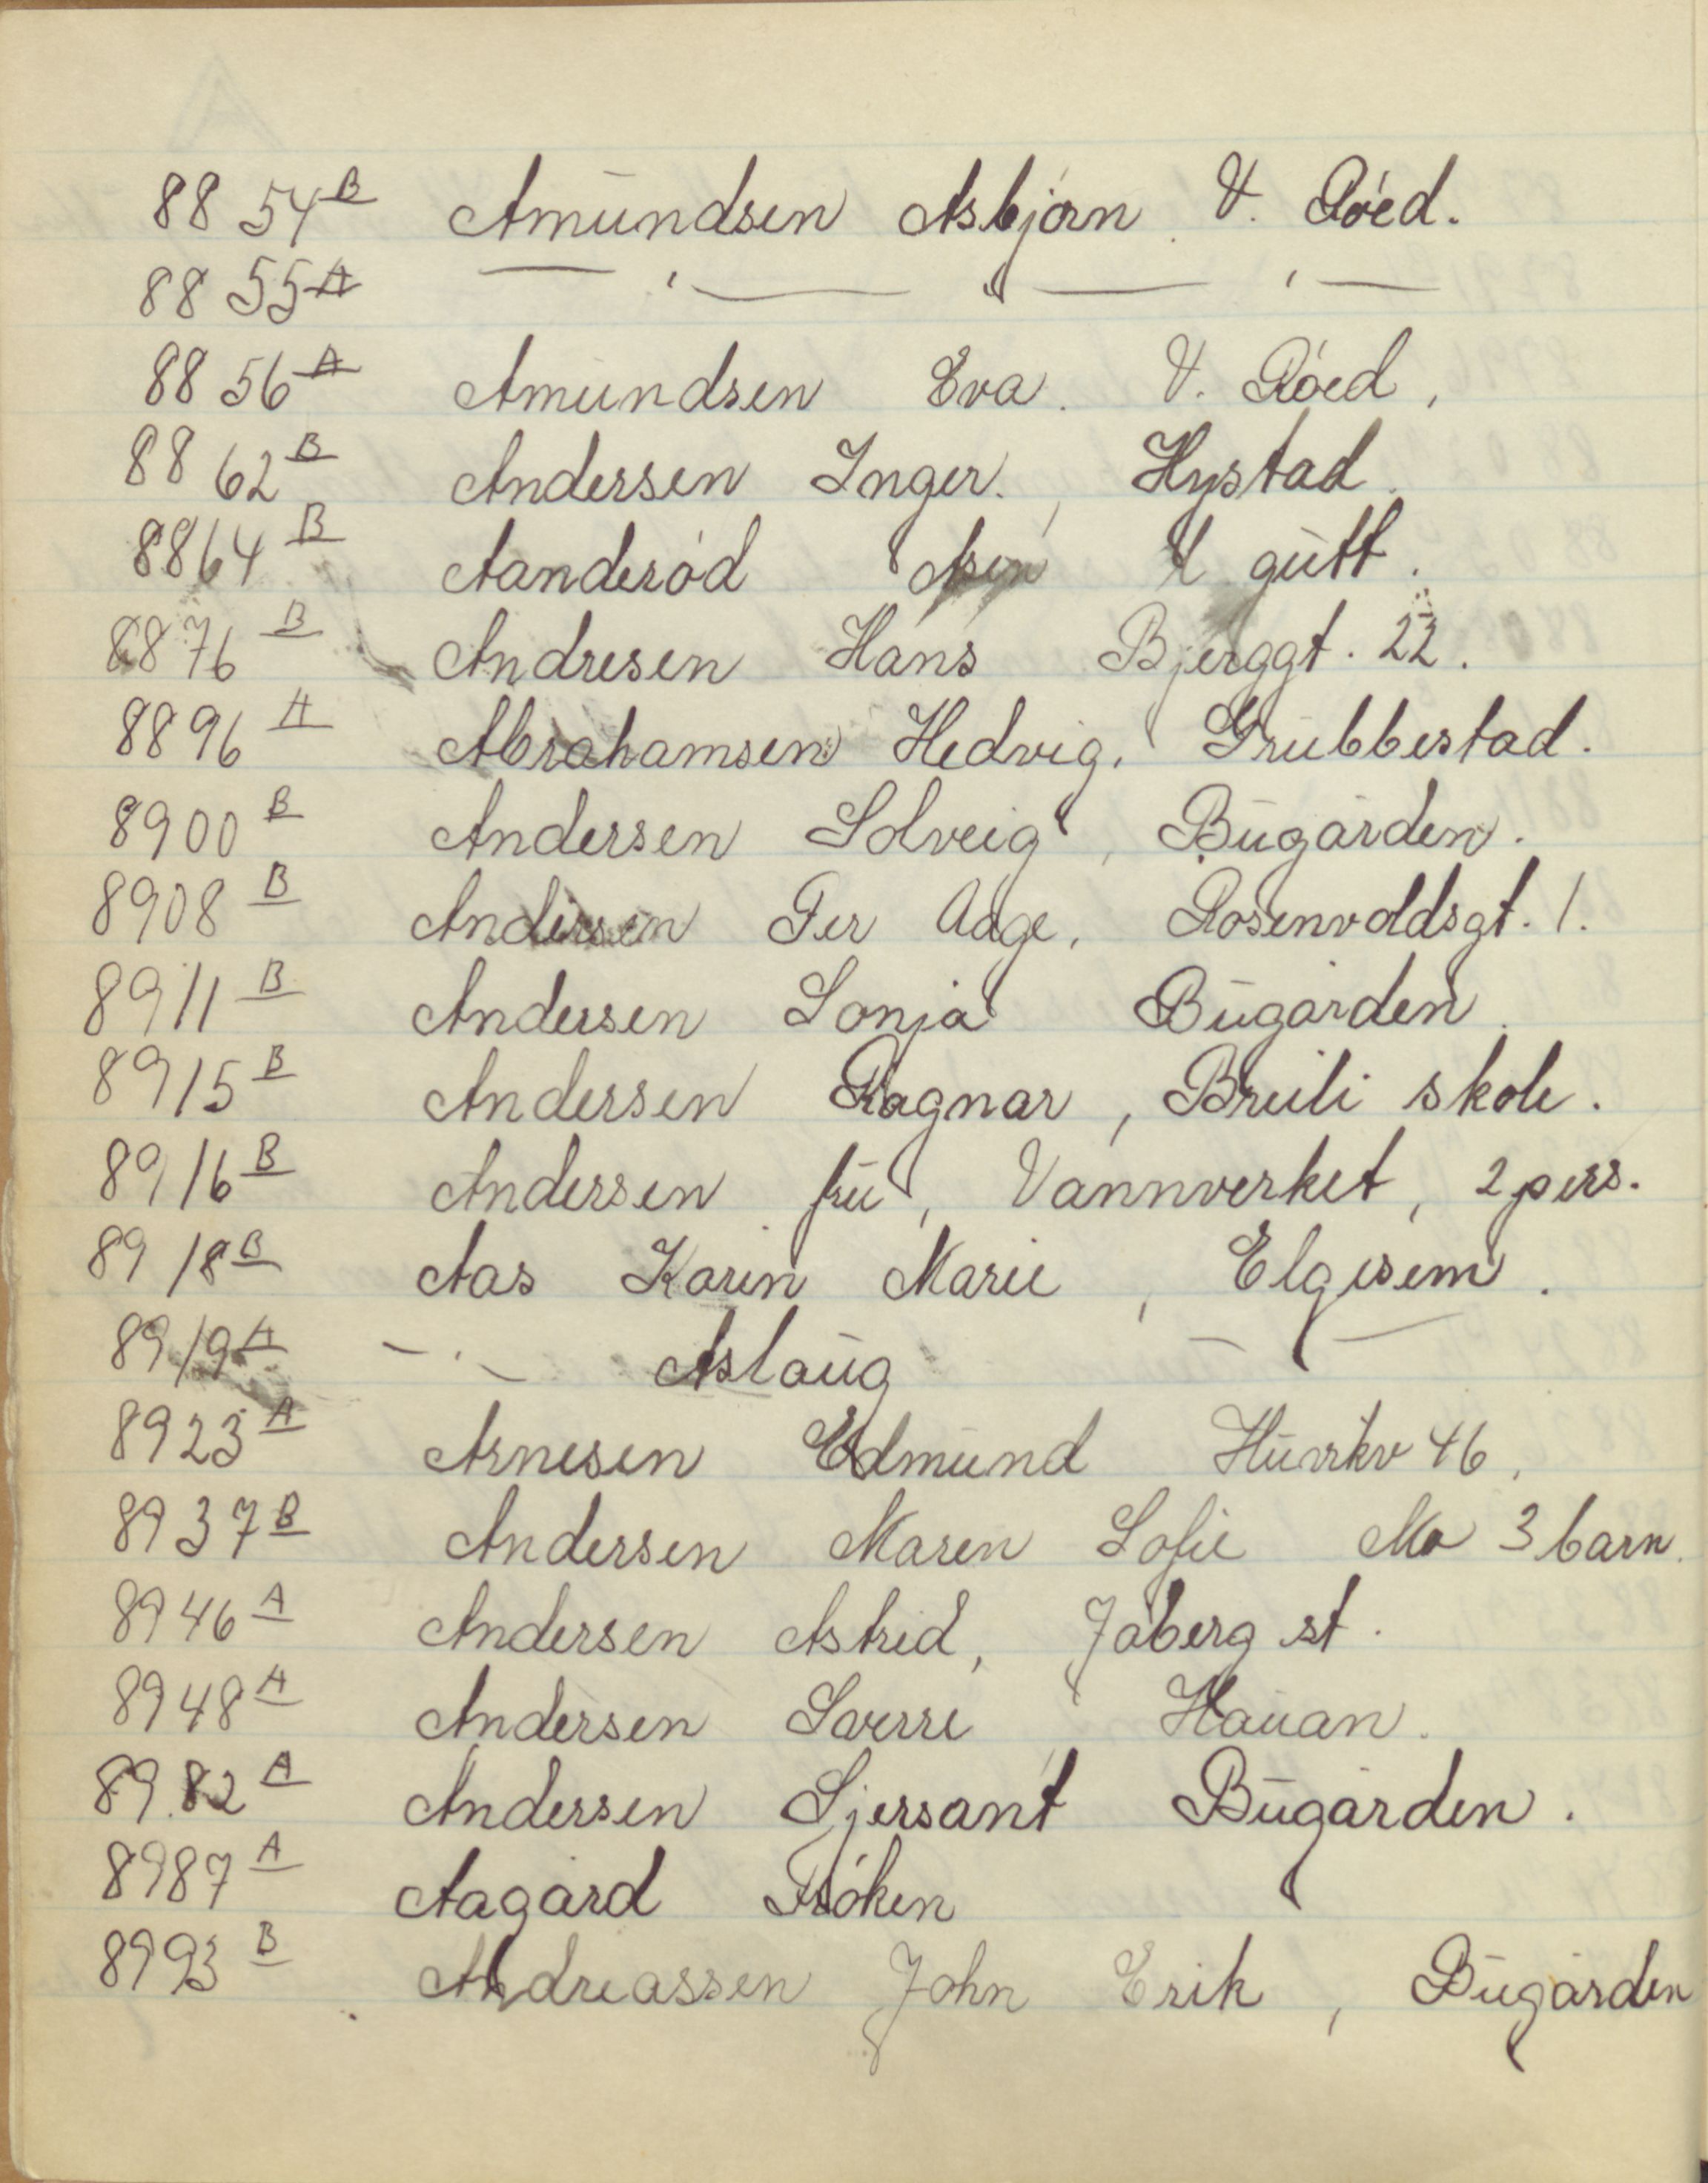 8854 B Amundsen Asbjørn. V. Røed.
8855 A — ' — " — ' —
8856 A Amundsen Eva. V. Røed,
8862 B Andersen Inger., Hystad.
8864 B Aanderød gutt.
8876 B Andresen Hans Bjerggt. 22.
8896 A Abrahamsen Hedvig, Grubbestad.
8900 B Andersen Solveig, Bugården.
8908 B Andersen Per Aage, Rosenvoldsgt. 1.
8911 B Andersen Sonja Bugården.
8915 B Andersen Ragnar, Breili skole.
8916 B Andersen fru, Vannverket, 2 pers.
8918 B Aas Karin Marie, Elgesem.
8919 A — ' — Aslaug — ' —
8923 A Arnesen Edmund 46,
8937 B Andersen Maren Sofie Mo 3 barn.
8946 A Andersen Astrid, Jåberg st.
8948 A Andersen Sverre, Hauan.
8982 A Andersen Sjersant Bugården.
8987 A Aagård Frøken
8993 B Andreassen John Erik, Bugården